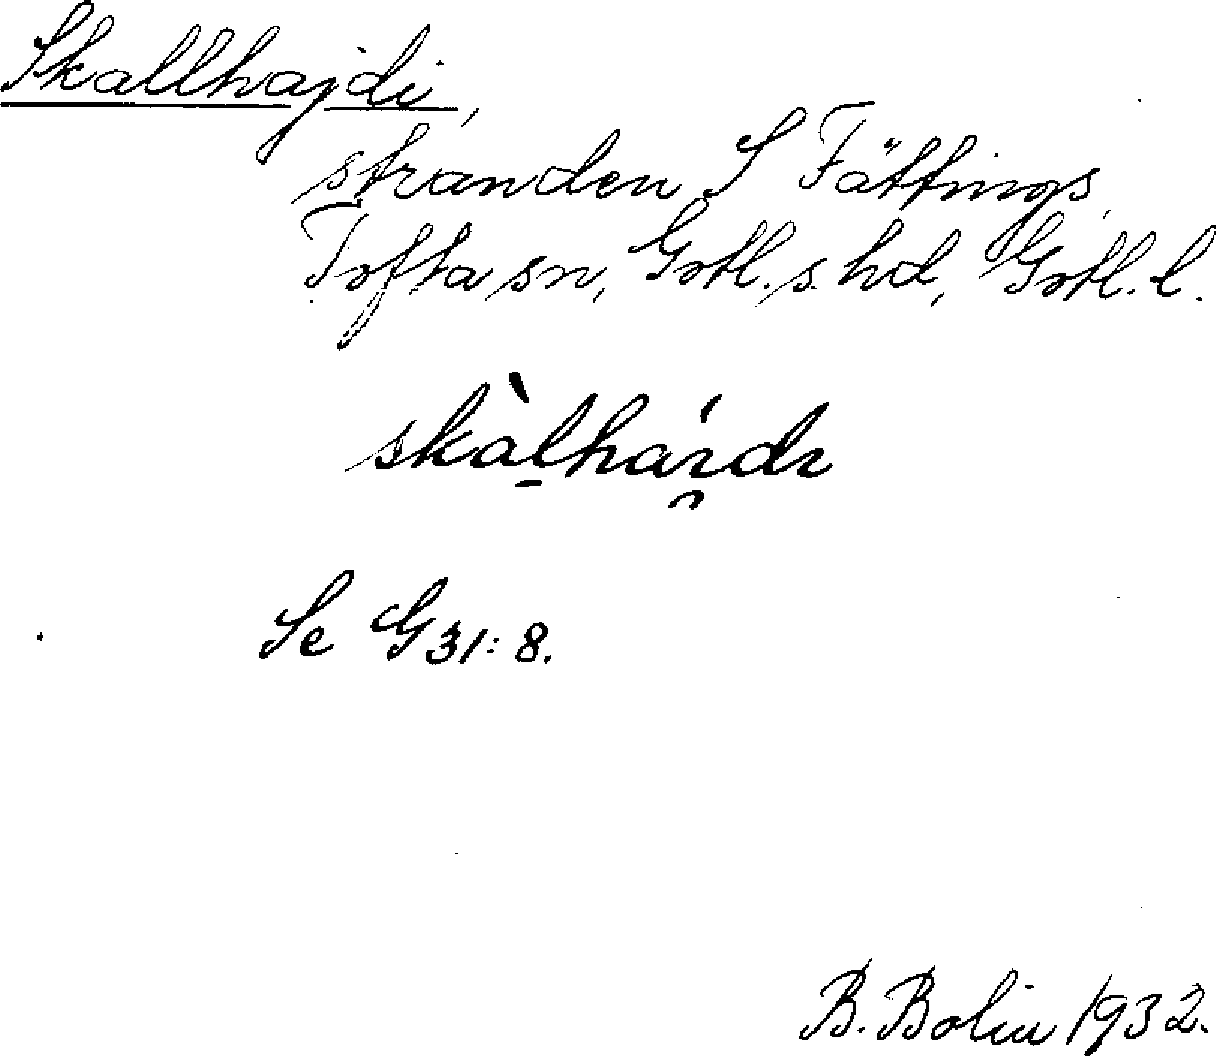 Skallhajdi,
stranden S Fättings,
Tofta sn, Gotl. s. hd, Gotl. l.
Se G 31: 8.
B. Bolin 1932.